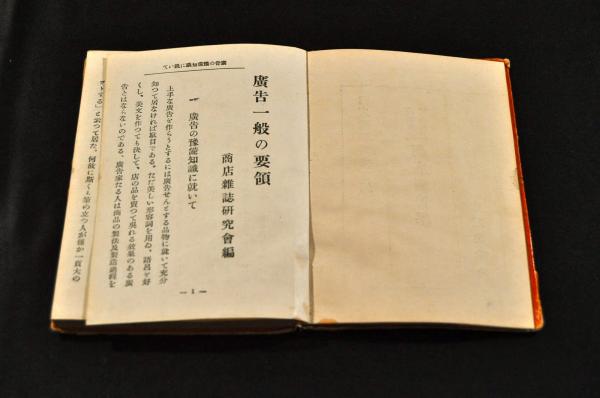 廣吿一般の要領
商店雜誌硏究會編
一 廣吿の豫備知識に就いて
上手な廣吿を作らうとするには廣吿せんとする品物に就いて充分
知つて居なければ駄目である。たゞ美しい形容詞を用ゐ、語呂を好
くし、美文を作つても決して、店の品を買つて吳れる效果のある廣
吿とはならないのである、廣吿家たる人は商品の製法及製造過程を
廣吿の豫備知識に就いて
— 1 —
する」と云つて居た、何故に斯くも筆の立つ人が僅か一頁大の